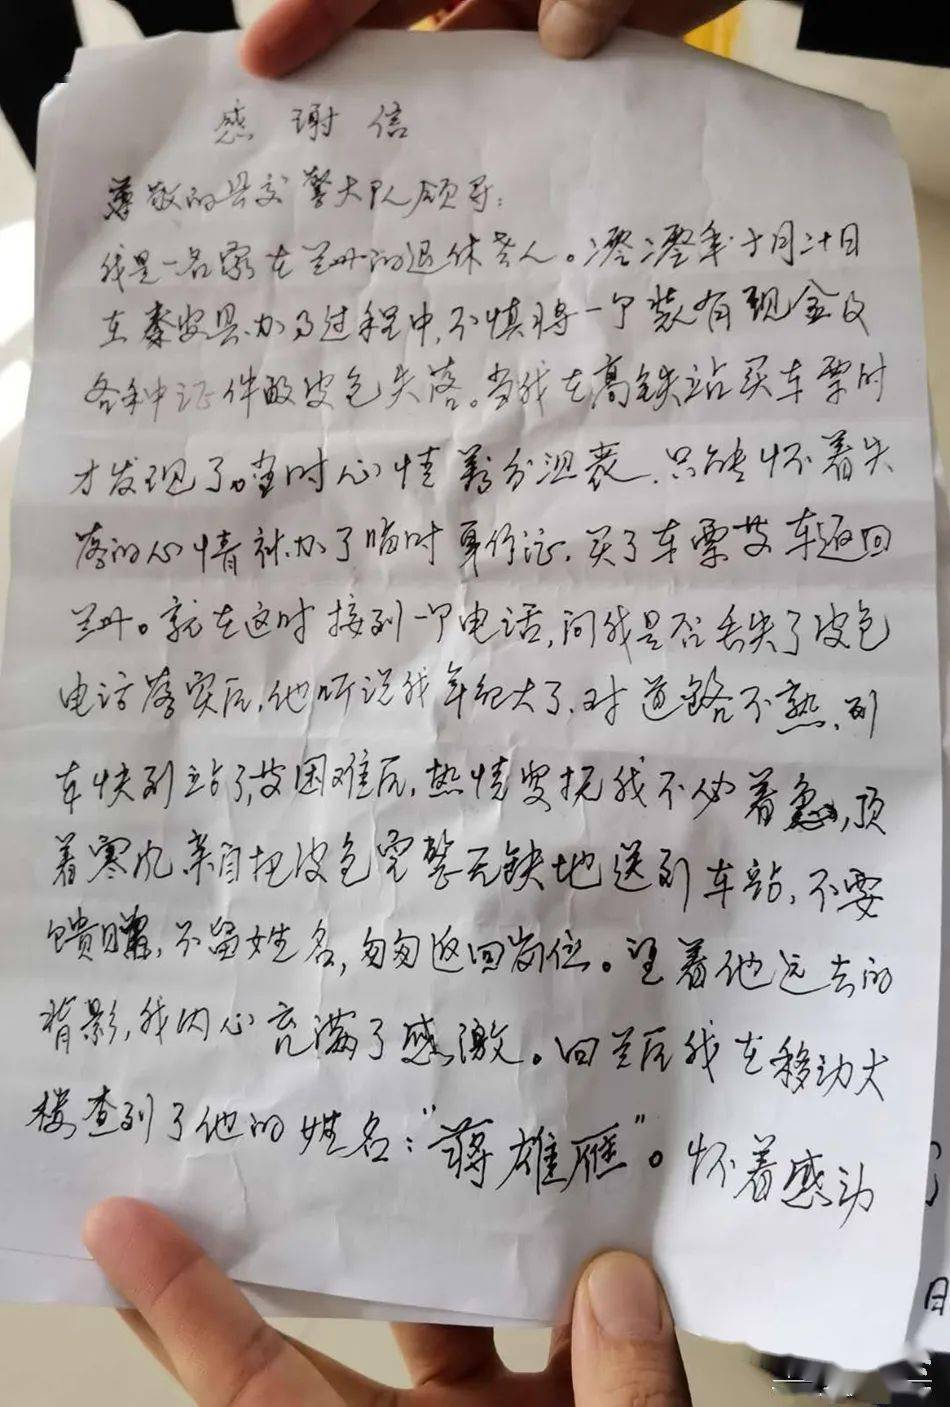 感谢信
尊敬的县交警大队领导：
我是一名家在兰州的退休老人。年十月二十日
在秦安县办事过程中，不慎将一个装有现金及
各种证件的皮包失落。当我在高铁站买车票时
才发现了。当时心情万分沮丧，只能怀着失
落的心情补办了临时身份证，买了车票发车返回
兰州。就在这时接到一个电话，问我是否丢失了皮包
电话落实后，他听说我年纪大了，对道路不熟，列
车快到站了，困难后，热情安抚我不必着急，顶
着寒风亲自把皮包完整无缺地送到车站，不要
馈赠，不留姓名，匆匆返回岗位。望着他远去的
背影，我内心充满了感激。回兰后我在移动大
楼查到了他的姓名：“蒋雄雁”。怀着感动
日